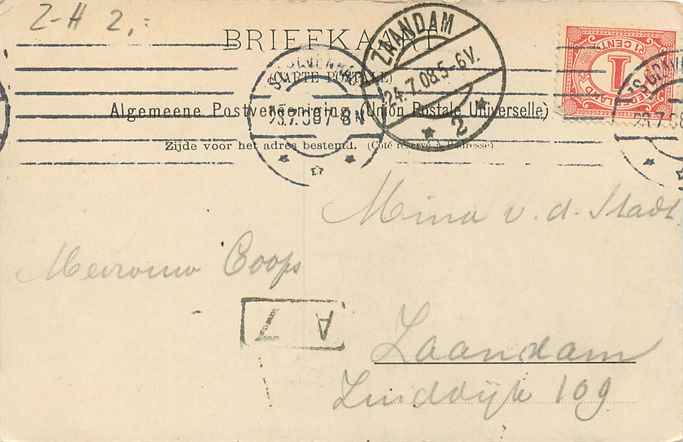 Z-H 2,=
BRIEFKAART
(CARTE POSTALE)
Algemeene Postvereeniging (Union Postale Universelle)
Zijde voor het adres bestemd. (Côté réservé à l'adresse)
ZAANDAM
24.7.08.5-6V.
2
23.7.08 7-8N
1 CENT
1
NEDERLAND
Mina v.d. Stadt,
Mevrouw Coops
A 7
Zaandam
Zuiddijk 109